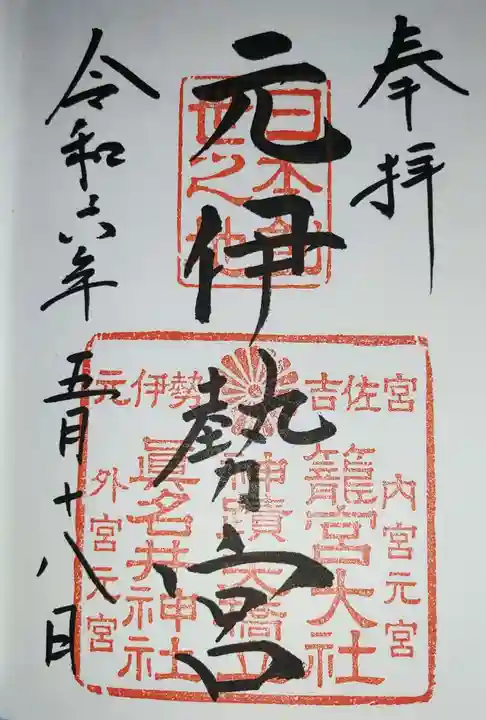 奉拝
元伊勢宮
令和六年五月十八日
日本創
世之地
宮佐吉
勢伊元
内宮元宮
籠宮大社
神蹟天橋立
眞名井神社
外宮元宮